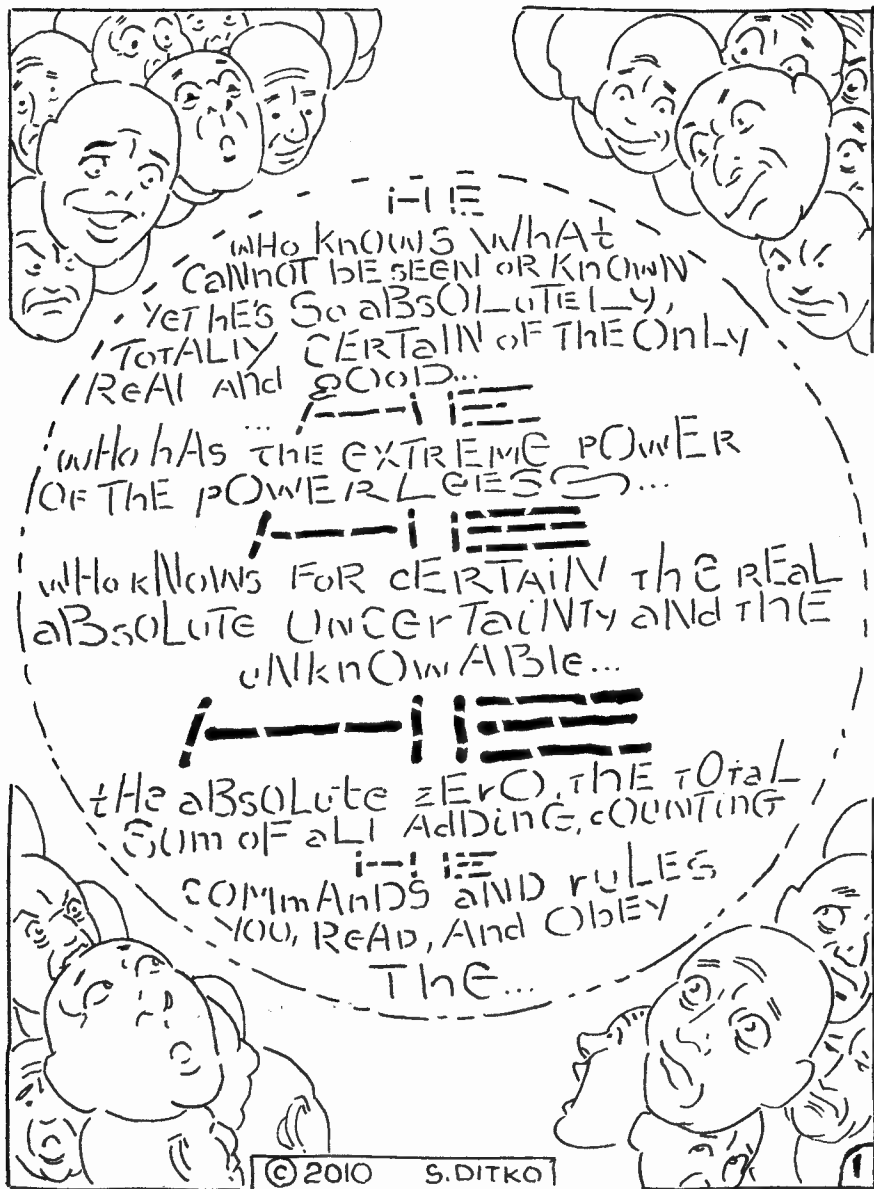 HE
wHo knOWS WhAt
CaNnOT bE sEEN OR KnOwN
YeT hE'S So aBsOLuTELy,
ToTALLY CERTaIN oF ThE OnLy
ReAl And gOOD...
HE
... wHo hAs ThE eXTREME pOwER
OF ThE pOWERLeESS...
HE
wHo kNOWs FOR cERTAiN ThE REaL
aBsOLuTE UNCerTaiNTy aNd ThE
uNknOwABle...
HE
tHe aBsOLute zErO, ThE TOtaL
SUm oF aLl AdDinG, cOUNTinG
HE
COMmAnDS aND ruLES
YOU, ReAD, And ObEY
ThE...
© 2010 S.DITKO
1